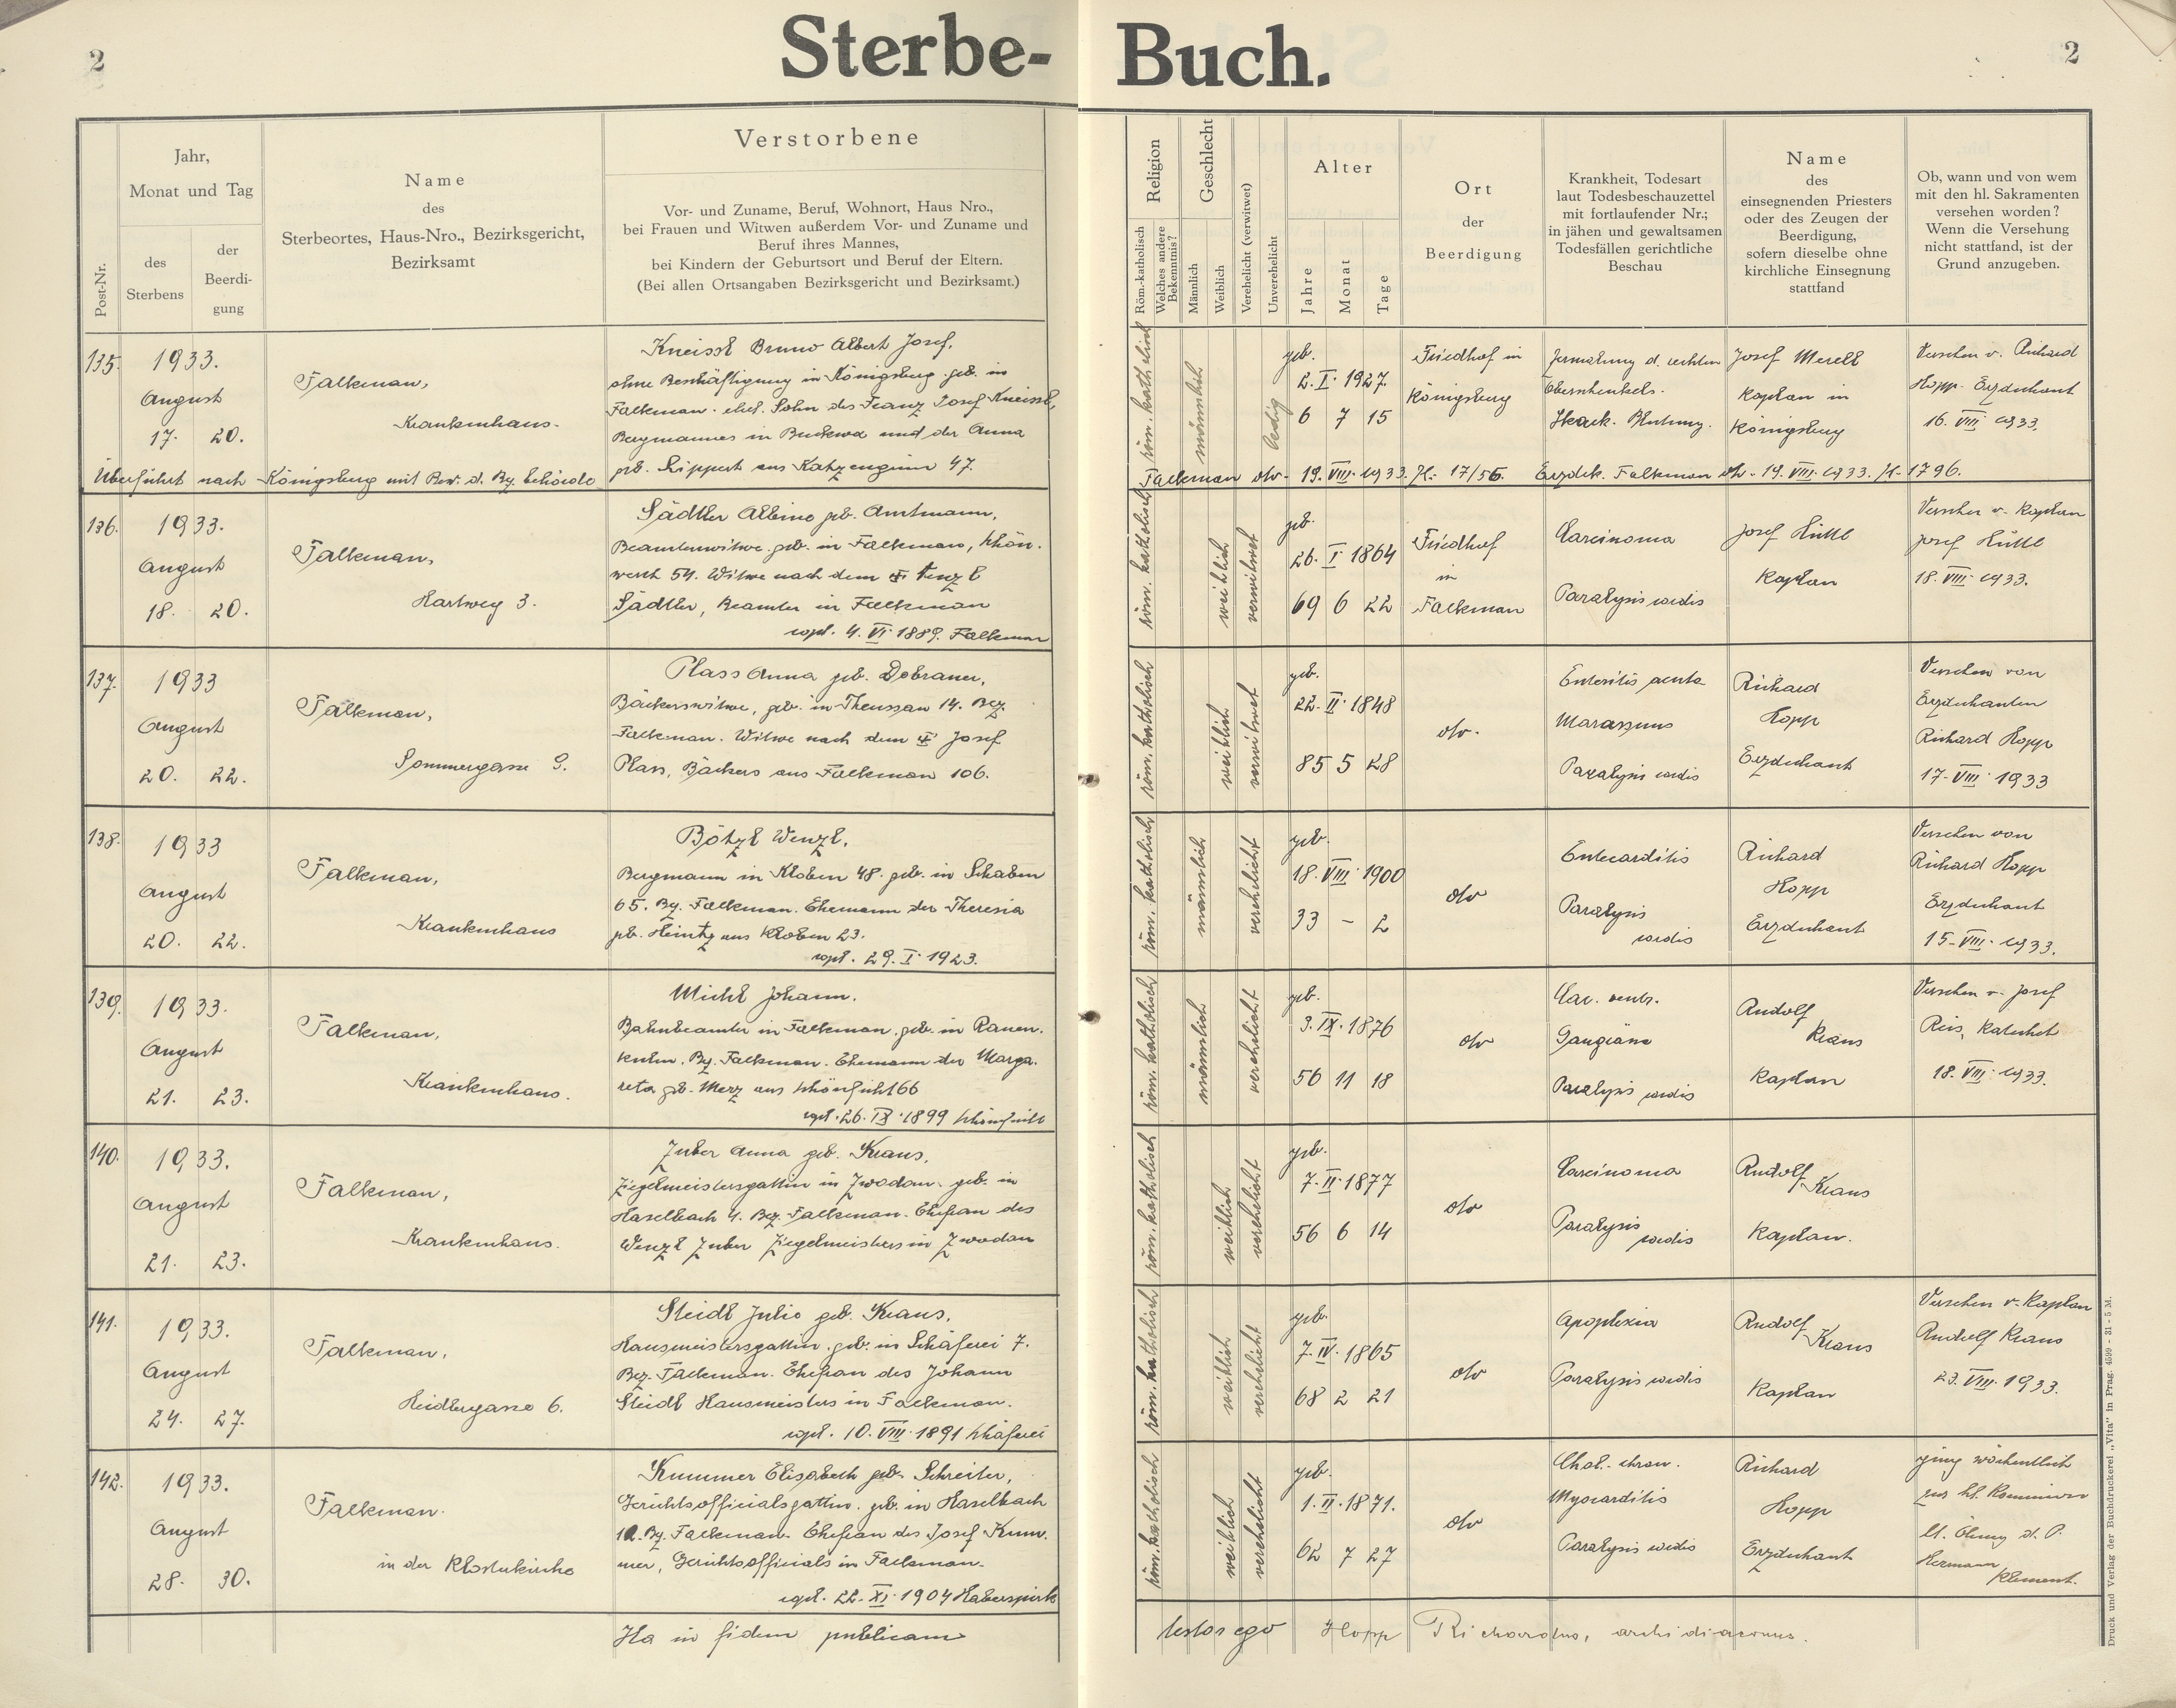 2
Sterbe-Buch.
2
Post-Nr.
Jahr,
Monat und Tag
des
Sterbens
der
Beerdi-
gung
Name
des
Sterbeortes, Haus-Nro., Bezirksgericht,
Bezirksamt
Verstorbene
Vor- und Zuname, Beruf, Wohnort, Haus Nro.,
bei Frauen und Witwen außerdem Vor- und Zuname und
Beruf ihres Mannes,
bei Kindern der Geburtsort und Beruf der Eltern.
(Bei allen Ortsangaben Bezirksgericht und Bezirksamt.)
Religion
Röm.-katholisch
Welches andere
Bekenntnis?
Geschlecht
Männlich
Weiblich
Verehelicht (verwitwet)
Unverehelicht
Alter
Jahre
Monat
Tage
Ort
der
Beerdigung
Krankheit, Todesart
laut Todesbeschauzettel
mit fortlaufender Nr.;
in jähen und gewaltsamen
Todesfällen gerichtliche
Beschau
Name
des
einsegnenden Priesters
oder des Zeugen der
Beerdigung,
sofern dieselbe ohne
kirchliche Einsegnung
stattfand
Ob, wann und von wem
mit den hl. Sakramenten
versehen worden?
Wenn die Versehung
nicht stattfand, ist der
Grund anzugeben.
135.
1933.
August
17. 20.
Falkenau,
Krankenhaus.
Kneissl Bruno Albert Josef,
ohne Beschäftigung in Königsberg. geb. in
Falkenau. ehel. Sohn des Franz Josef Kneissl,
Bergmannes in Buckwa und der Anna
geb. Lippert aus Katzengrün 47.
röm. katholisch
männlich
ledig
geb.
2. I. 1927.
6 7 15
Friedhof in
Königsberg
Zermalmung d. rechten
Oberschenkels.
Stark. Blutung.
Josef Merell
Kaplan in
Königsberg
Versehen v. Richard
Hopp. Erzdechant
16. VIII. 1933.
Überführt nach Königsberg mit Bew. d. Bez. behörde
Falkenau dto. 19. VIII. 1933. Zl. 17/56. Erzdek. Falkenau dto. 19. VIII. 1933. Zl. 1796.
136.
1933.
August
18. 20.
Falkenau,
Hartweg 3.
Sädtler Albine geb. Amtmann,
Beamtenwitwe. geb. in Falkenau, Schön-
werth 54. Witwe nach dem Wenzl
Sädtler, Beamter in Falkenau
copul. 4. VI. 1889. Falkenau
röm. katholisch
weiblich
verwitwet
geb.
26. I. 1864
69 6 22
Friedhof
in
Falkenau
Carcinoma
Paralysis cordis
Josef Hüttl
Kaplan
Versehen v. Kaplan
Josef Hüttl
18. VIII. 1933.
137.
1933
August
20. 22.
Falkenau,
Sommergasse 9.
Plass Anna geb. Dobrauer,
Bäckerswitwe, geb. in Theussau 14. Bez.
Falkenau. Witwe nach dem Josef
Plass, Bäckers aus Falkenau 106.
röm. katholisch
weiblich
verwitwet
geb.
22. II. 1848
85 5 28
dto.
Enteritis acuta
Marasmus
Paralysis cordis
Richard
Hopp
Erzdechant
Versehen von
Erzdechanten
Richard Hopp
17. VIII. 1933
138.
1933
August
20. 22.
Falkenau,
Krankenhaus
Bötzl Wenzl,
Bergmann in Kloben 48. geb. in Schaben
65. Bz. Falkenau. Ehemann der Theresia
geb. Heintz aus Kloben 23.
copl. 29. I. 1923.
röm. katholisch
männlich
verehelicht
geb.
18. VIII. 1900
33 - 2
dto
Entecarditis
Paralysis
cordis
Richard
Hopp
Erzdechant
Versehen von
Richard Hopp
Erzdechant
15. VIII. 1933.
139.
1933.
August
21. 23.
Falkenau,
Krankenhaus.
Michl Johann.
Bahnbeamter in Falkenau. geb. in Rauen-
kulm. Bz. Falkenau. Ehemann der Marga-
reta geb. Merz aus Schönficht 66
copl. 26. IX. 1899 Schönficht
röm. katholisch
männlich
verehelicht
geb.
3. IX. 1876
56 11 18
dto
Car. ventr.
Gangräna
Paralysis cordis
Rudolf
Kraus
Kaplan
Versehen v. Josef
Reis, Katechet
18. VIII. 1933.
140.
1933.
August
21. 23.
Falkenau,
Krankenhaus.
Zuber Anna geb. Kraus,
Ziegelmeistersgattin in Zwodau. geb. in
Haselbach 4. Bez. Falkenau. Ehefrau des
Wenzl Zuber Ziegelmeisters in Zwodau
röm. katholisch
weiblich
verehelicht
geb.
7. II. 1877
56 6 14
dto
Carcinoma
Paralysis
cordis
Rudolf
Kraus
Kaplan.
141.
1933.
August
24. 27.
Falkenau,
Heidlergasse 6.
Steidl Julie geb. Kraus,
Hausmeistersgattin. geb. in Schäferei 7.
Bez. Falkenau. Ehefrau des Johann
Steidl Hausmeisters in Falkenau.
copl. 10. VIII. 1891 Schäferei
röm. katholisch
weiblich
verehelicht
geb.
7. IV. 1865
68 2 21
dto
Apoplexia
Paralysis cordis
Rudolf
Kraus
Kaplan
Versehen v. Kaplan
Rudolf Kraus
23. VIII. 1933.
142.
1933.
August
28. 30.
Falkenau.
in der Klosterkirche
Kummer Elisabeth geb. Schreiter,
Gerichtsofficialsgattin. geb. in Haselbach
Bz. Falkenau. Ehefrau des Josef Kum-
mer, Gerichtsofficials in Falkenau.
copl. 22. XI. 1904 Haberspirk
röm. katholisch
weiblich
verehelicht
geb.
1. II. 1871.
62 7 27
dto
Chol. chron.
Myocarditis
Paralysis cordis
Richard
Hopp
Erzdechant
ging wöchentlich
zur hl. Kommunion
hl. Ölung d. P.
Hermann
Klement.
Ita in fidem publicam testor ego Hopp Richardus, archidiaconus.
Druck und Verlag der Buchdruckerei „Vita" in Prag. 4599 - 31 - 5 M.